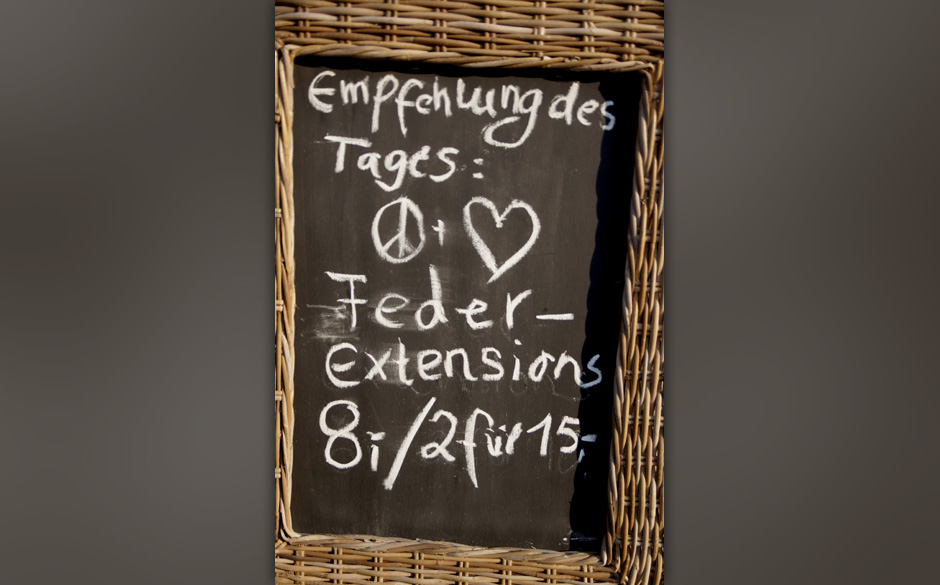 Empfehlung des
Tages:
☮ + ♡
Feder-
Extensions
8,-/2 für 15,-